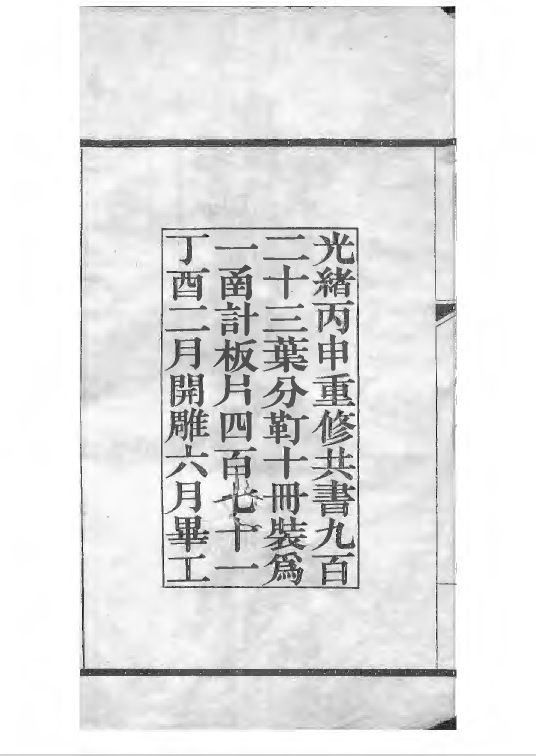 光緒丙申重修共書九百
二十三葉分靪十冊裝爲
一函計板片四百七十一
丁酉二月開雕六月畢工